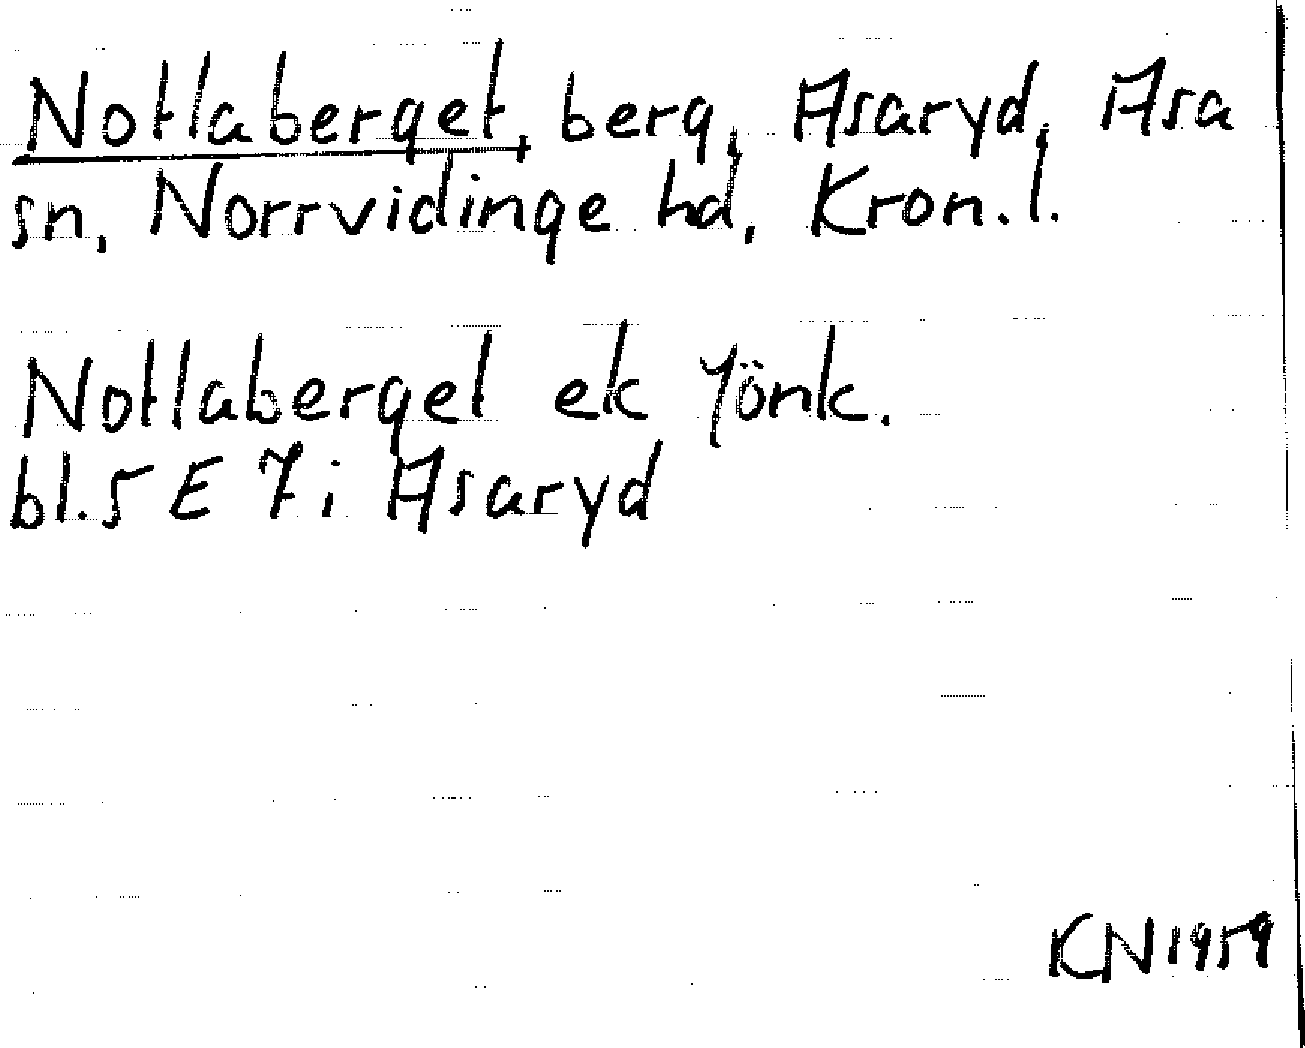 Notlaberget, berg, Asaryd, Asa
sn, Norrvidinge hd, Kron. l.
Notlaberget ek Jönk.
bl. 5 E 7 i Asaryd
KN 1959